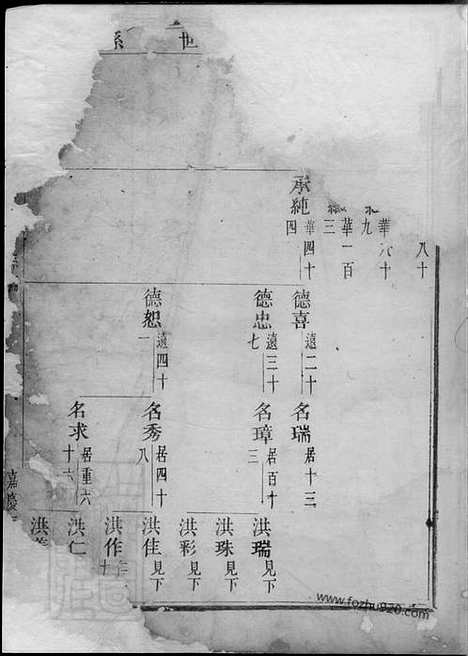 世系
八十
華六十九
華一百三
承純 華四十四
德喜 遠二十
德忠 遠三十七
德恕 遠四十一
名瑞 居十三
名璋 居百十三
名秀 居四十八
名求 居重六十六
洪瑞 見下
洪珠 見下
洪彩 見下
洪佳 見下
洪作
洪仁
洪
嘉慶
www.fozhu920.com